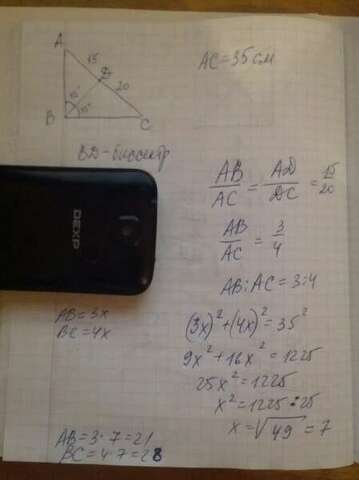 A
15
D
20
45°
45°
B
C
AC=35 см
BD-биссектр
AB/AC = AD/DC = 15/20
AB/AC = 3/4
AB:AC=3:4
DEXP
AB=3x
BC=4x
(3x)²+(4x)²=35²
9x²+16x²=1225
25x²=1225
x²=1225:25
x=√49=7
AB=3·7=21
BC=4·7=28